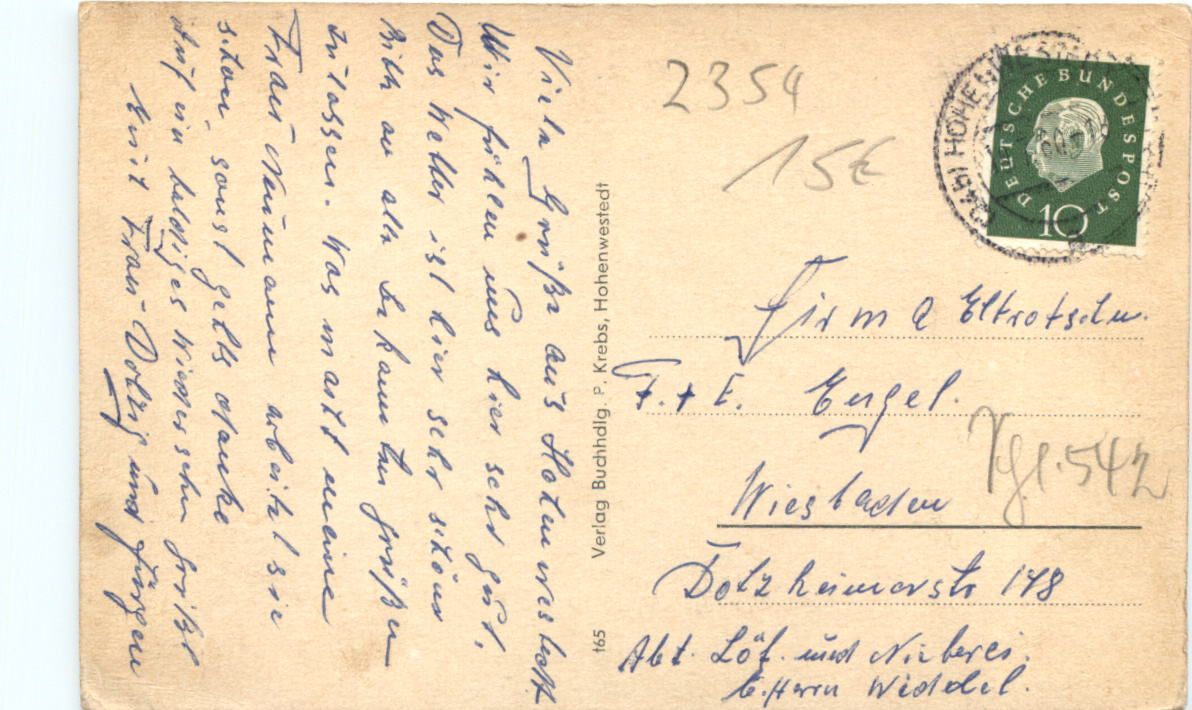 Viele Grüße aus Hohenwestedt.
Wir fühlen uns hier sehr gut.
Das Wetter ist hier sehr schön
Bitte an alle Bekannten grüßen
zulassen. Was macht meine
Frau Neumann arbeitet sie
schon, sonst gehts danke
Auf ein baldiges Wiedersehn grüßt
Euch Frau und Jürgen
Verlag Buchhdlg. P. Krebs, Hohenwestedt
t65
2354
15€
HOHENWESTEDT
DEUTSCHE BUNDESPOST
10
Firma
F. + E. Engel.
Vgl. 542
Wiesbaden
Dotzheimerstr 148
Abt. Löt. und Nieterei.
b. Herrn Weddel.